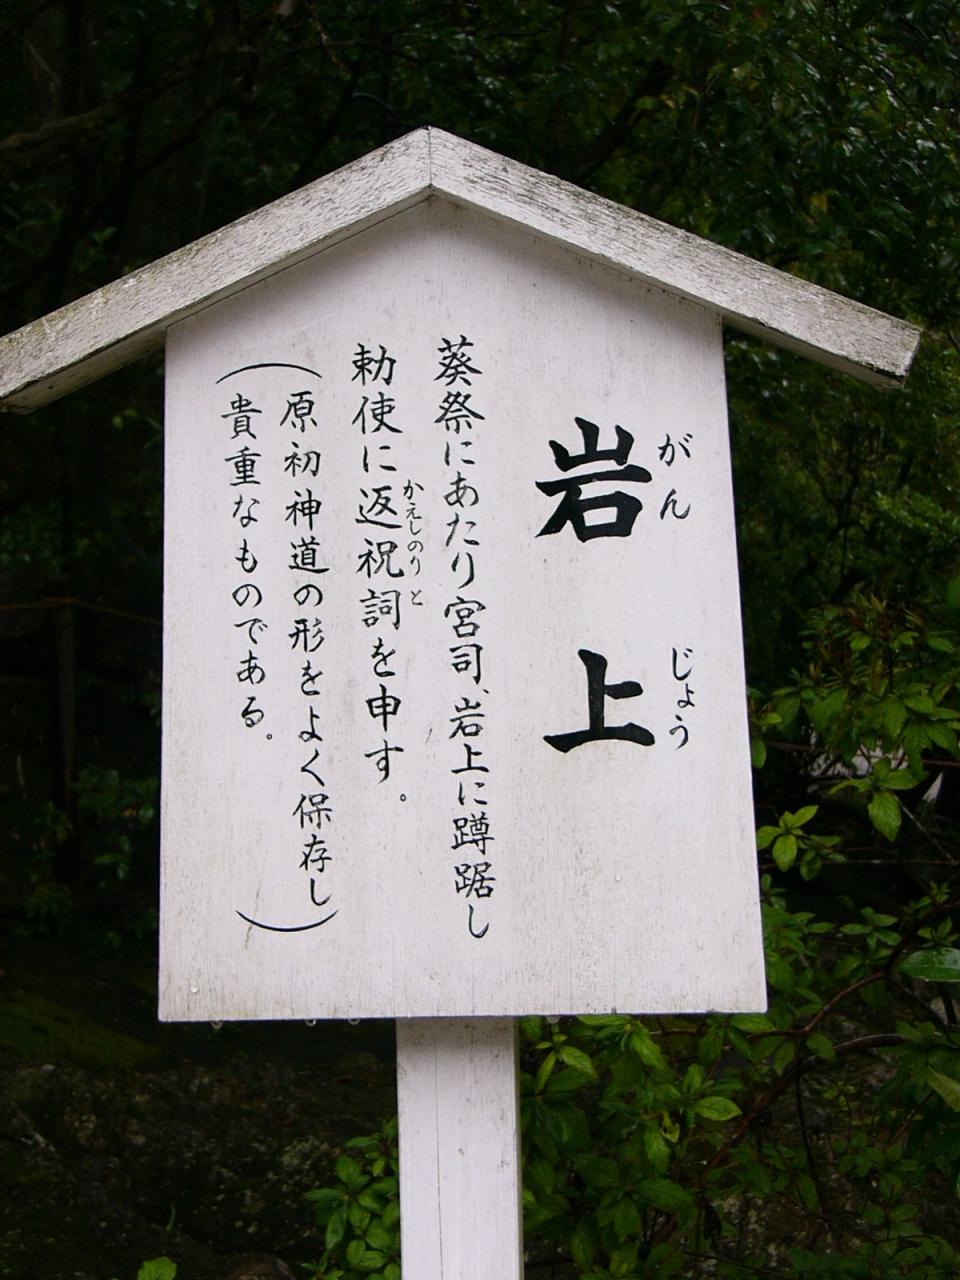 岩上
がんじょう
葵祭にあたり宮司、岩上に蹲踞し
勅使に返祝詞を申す。
かえしのりと
(原初神道の形をよく保存し
貴重なものである。)